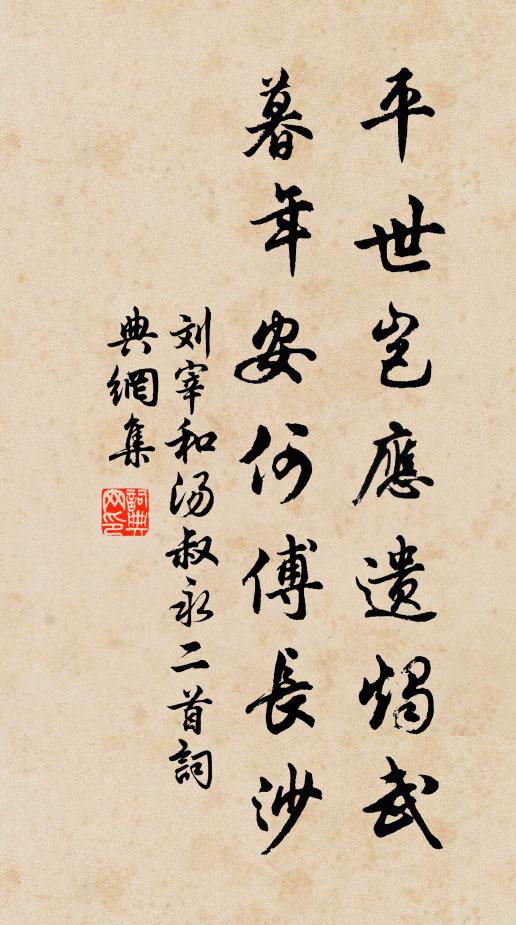 平世岂應遗燭武
暮年安何傅長沙
刘宰和汤叔永二首詞
典網集
詞典网印